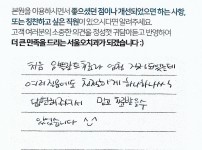 본원을 이용하시면서 좋으셨던 점이나 개선되었으면 하는 사항,
또는 칭찬하고 싶은 직원이 있으시다면 알려주세요.
고객 여러분의 소중한 의견을 정성껏 귀담아듣고 반영하여
더 큰 만족을 드리는 서울오치과가 되겠습니다 :)
처음
여러 직원에도 친절하게 하나하나씩
답변해주셔서 믿고 할 수
있었습니다 ^^